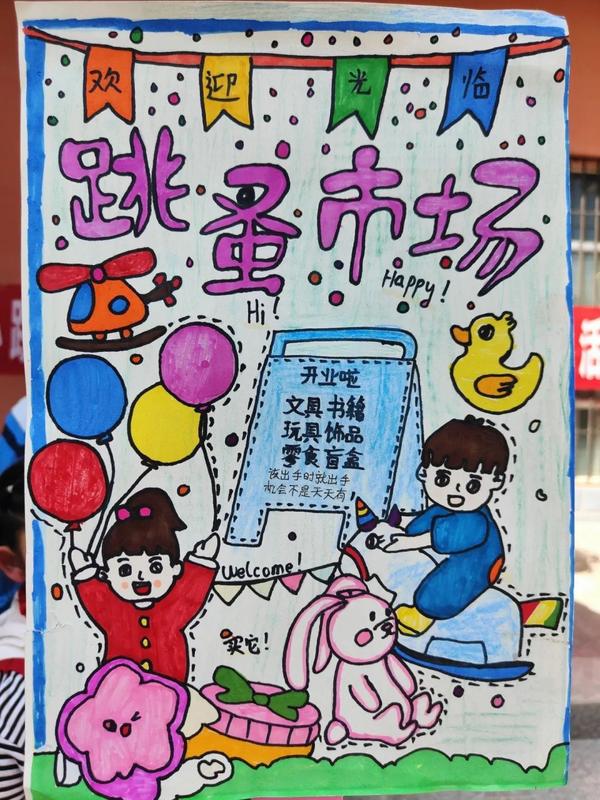 欢迎光临
跳蚤市场
Happy!
Hi!
开业啦
文具 书籍
玩具 饰品
零食 盲盒
该出手时就出手
机会不是天天有
Welcome!
买它!